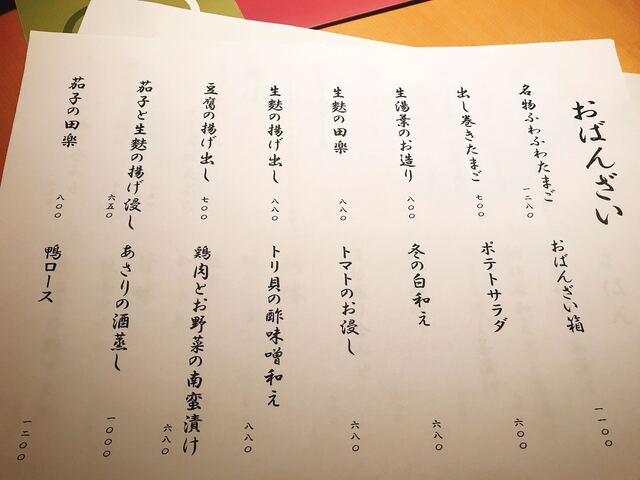 おばんざい
名物ふわふわたまご 一二八〇
出し巻きたまご 七〇〇
生湯葉のお造り 八〇〇
生麩の田楽 八八〇
生麩の揚げ出し 八八〇
豆腐の揚げ出し 七〇〇
茄子と生麩の揚げ浸し 六五〇
茄子の田楽 八〇〇
おばんざい箱 一一〇〇
ポテトサラダ 六〇〇
冬の白和え 六八〇
トマトのお浸し 六八〇
トリ貝の酢味噌和え 八八〇
鶏肉とお野菜の南蛮漬け 六八〇
あさりの酒蒸し 一〇〇〇
鴨ロース 一二〇〇